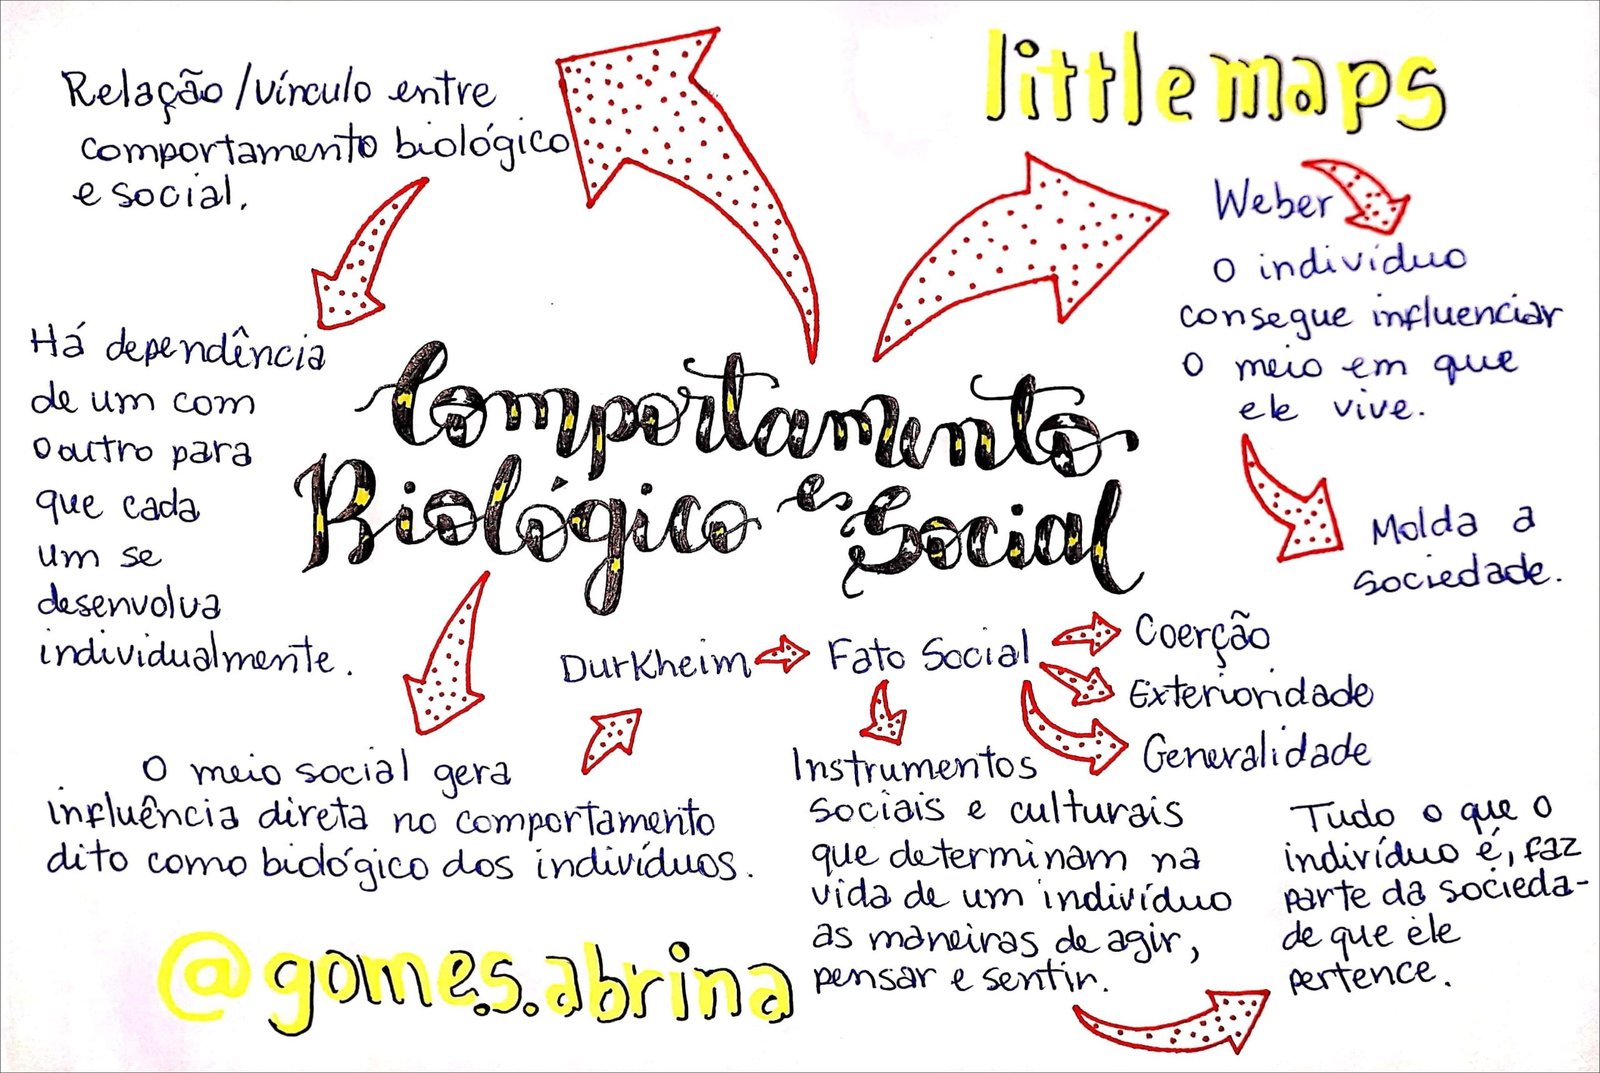 littlemaps
Relação/vínculo entre
comportamento biológico
e social.
Há dependência
de um com
o outro para
que cada
um se
desenvolva
individualmente.
Comportamento
Biológico e Social
Weber
O indivíduo
consegue influenciar
o meio em que
ele vive.
Molda a
sociedade.
O meio social gera
influência direta no comportamento
dito como biológico dos indivíduos.
Durkheim
Fato Social
Coerção
Exterioridade
Generalidade
Instrumentos
sociais e culturais
que determinam na
vida de um indivíduo
as maneiras de agir,
pensar e sentir.
Tudo o que o
indivíduo é, faz
parte da socieda-
de que ele
pertence.
@gome.s.abrina